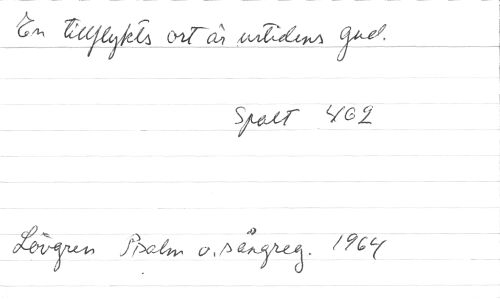 En tillflykts ort är urtidens gud.
Spalt 402
Lövgren Psalm o. sångreg. 1964